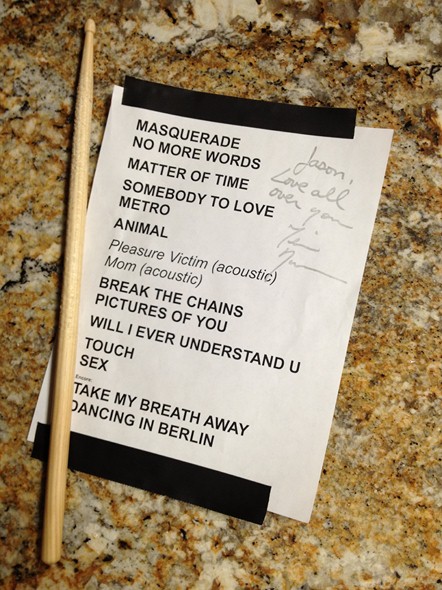 MASQUERADE
NO MORE WORDS
MATTER OF TIME
SOMEBODY TO LOVE
METRO
ANIMAL
Pleasure Victim (acoustic)
Mom (acoustic)
BREAK THE CHAINS
PICTURES OF YOU
WILL I EVER UNDERSTAND U
TOUCH
SEX
Encore:
TAKE MY BREATH AWAY
DANCING IN BERLIN
Jason,
Love all
over you